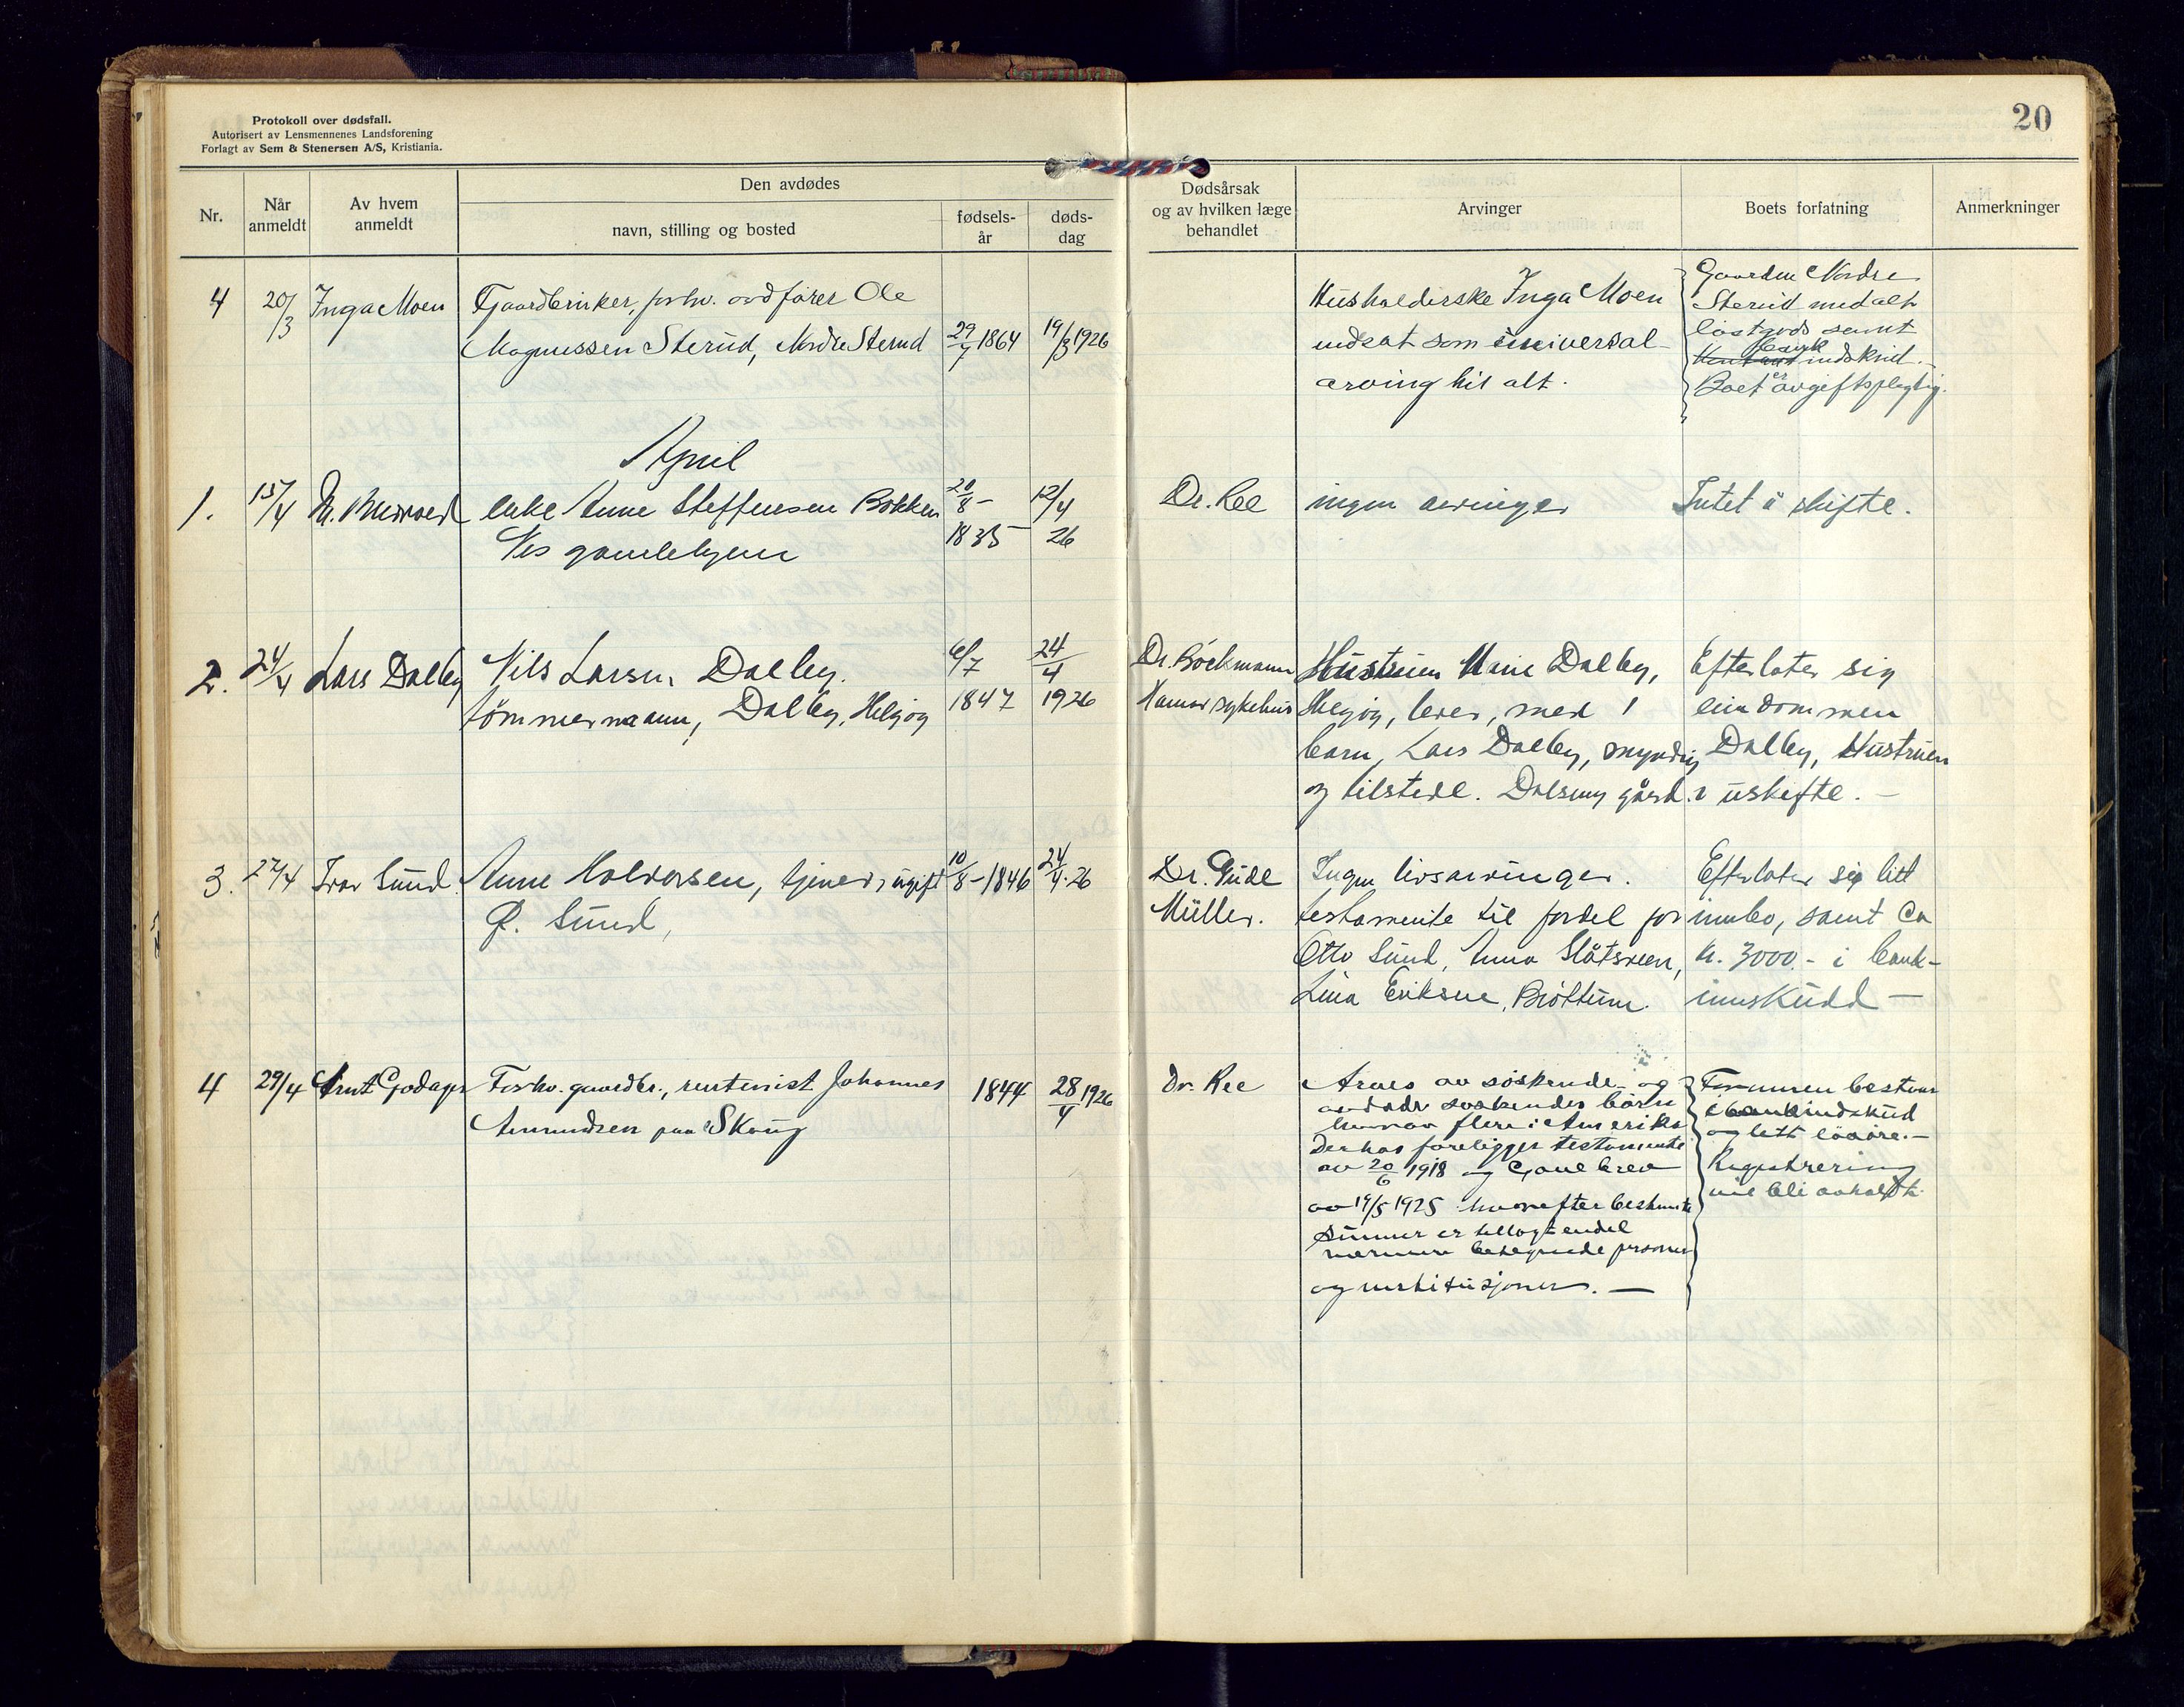 Protokoll over dødsfall.
Autorisert av Lensmennenes Landsforening
Forlagt av Sem & Stenersen A/S, Kristiania.
20
Nr.
Når
anmeldt
Av hvem
anmeldt
Den avdødes
navn, stilling og bosted
fødsels-
år
døds-
dag
Dødsårsak
og av hvilken læge
behandlet
Arvinger
Boets forfatning
Anmerkninger
4
20/3
Inga Moen
Gaardbruker, forhv. ordfører Ole
Magnussen Sterud, Nordre Sterud
29/7 1864
19/3 1926
Husholderske Inga Moen
indsat som universal-
arving til alt.
Gaarden Nordre
Sterud med alt
løstgods samt
bank
indskud.
Boet er avgiftspligtig.
April
1.
15/4
enke Anne Steffensen Bakken
Nes gamlehjem
20/8 -
1835
12/4
26
Dr. Ree
ingen arvinger
Intet å skifte.
2.
24/4
Lars Dalby
Nils Larsen Dalby.
tømmermann, Dalby, Helgøy
6/7
1847
24/4
1926
Dr. Böckmann
Hamar sykehus
Hustruen Marie Dalby,
Helgøy, lever, med 1
barn, Lars Dalby, myndig
og tilstede. gård.
Efterlater sig
eiendommen
Dalby, Hustruen
i uskifte. -
3.
27/4
Ivar Sund.
Anne Halvorsen, tjener, ugift
Ø. Sund,
10/8 - 1846
24/4.26
Dr. Gude
Müller.
Ingen livsarvinger.
testamente til fordel for
Otto Sund, Anna Slåtsveen,
Lina Eriksen, Brøttum.
Efterlater sig litt
innbo, samt ca
kr. 3000.- i bank-
innskudd -
4
29/4
Arnt Godager
Forhv. gaardbr., rentenist Johannes
Amundsen paa Skaug
1844
28/4 1926
Dr. Ree
Arves av søskende og
avdøde søskendes børn
hvorav flere i Amerika
Derhos foreligger testamente
av 20/6 1918 og Gavebrev
av 19/5 1925 hvorefter bestemte
summer er tillagt endel
nærmere betegnede personer
og institusjoner. -
Formuen bestaar
i bankindskud
og litt løsøre. -
Registrering
vil bli avholdt.